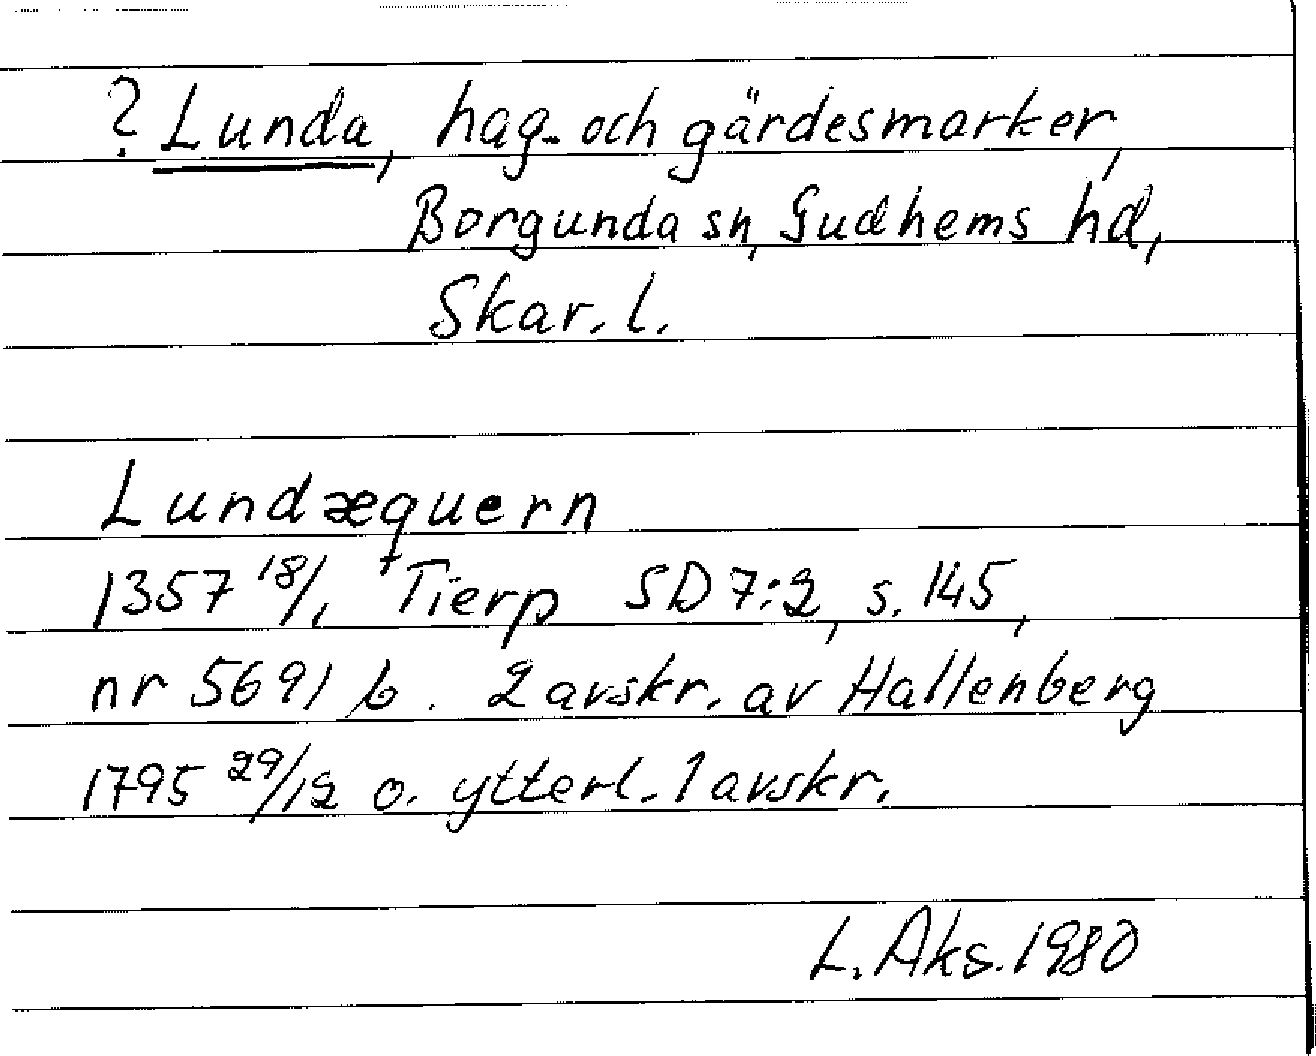 ? Lunda, hag- och gärdesmarker,
Borgunda sn, Gudhems hd,
Skar. l.
Lundæquern
1357 18/1 Tierp SD 7:2, s. 145,
nr 5691 b. 2 avskr. av Hallenberg
1795 29/12 o. ytterl. 1 avskr.
L. Aks. 1980